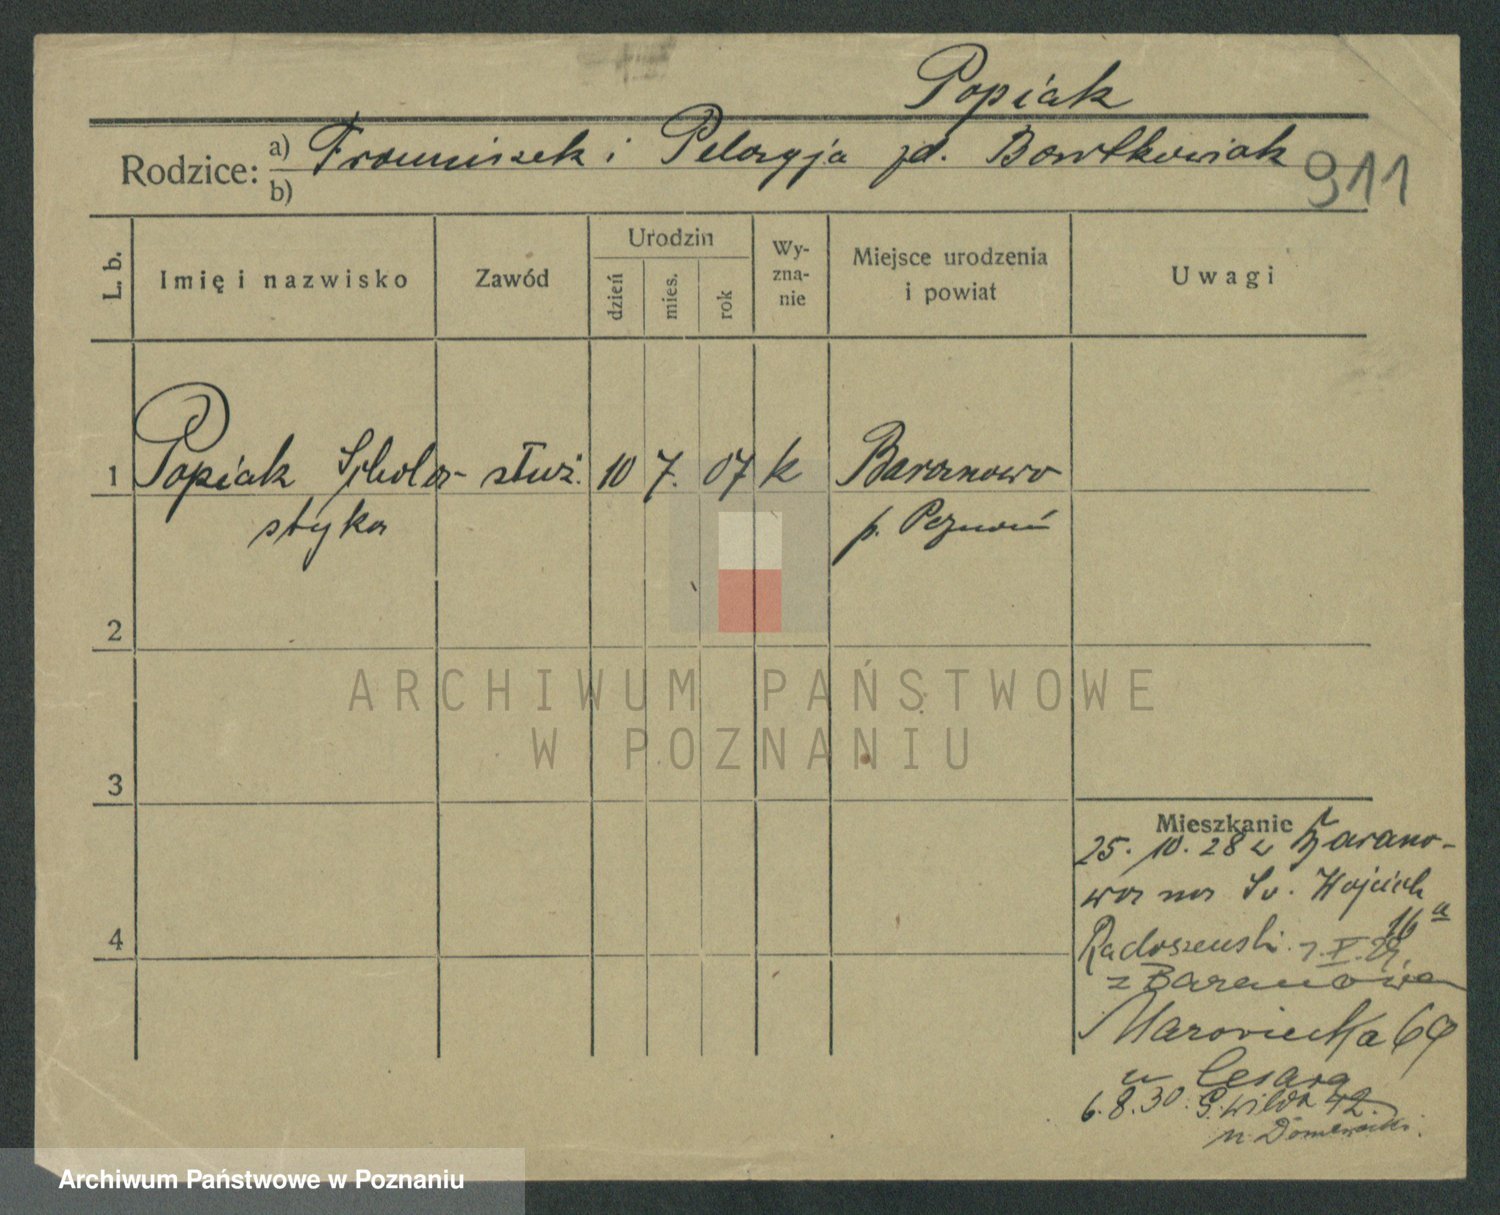 Popiak
Rodzice: a) Franciszek i Pelagja zd. Bartkowiak
b)
911
L. b.
Imię i nazwisko
Zawód
Urodzin
dzień
mies.
rok
Wy-
zna-
nie
Miejsce urodzenia
i powiat
Uwagi
1 Popiak Schola- służ. 10 7. 07 k Baranowo
styka p. Poznań
2
ARCHIWUM PAŃSTWOWE
W POZNANIU
3
4
Mieszkanie
25. 10. 28 z Barano-
wa na Św. Wojciech
16a
Radoszewski
z Baranowa
Mazowiecka 69
u Cesara
6.8.30. G. Wilda 42.
Archiwum Państwowe w Poznaniu